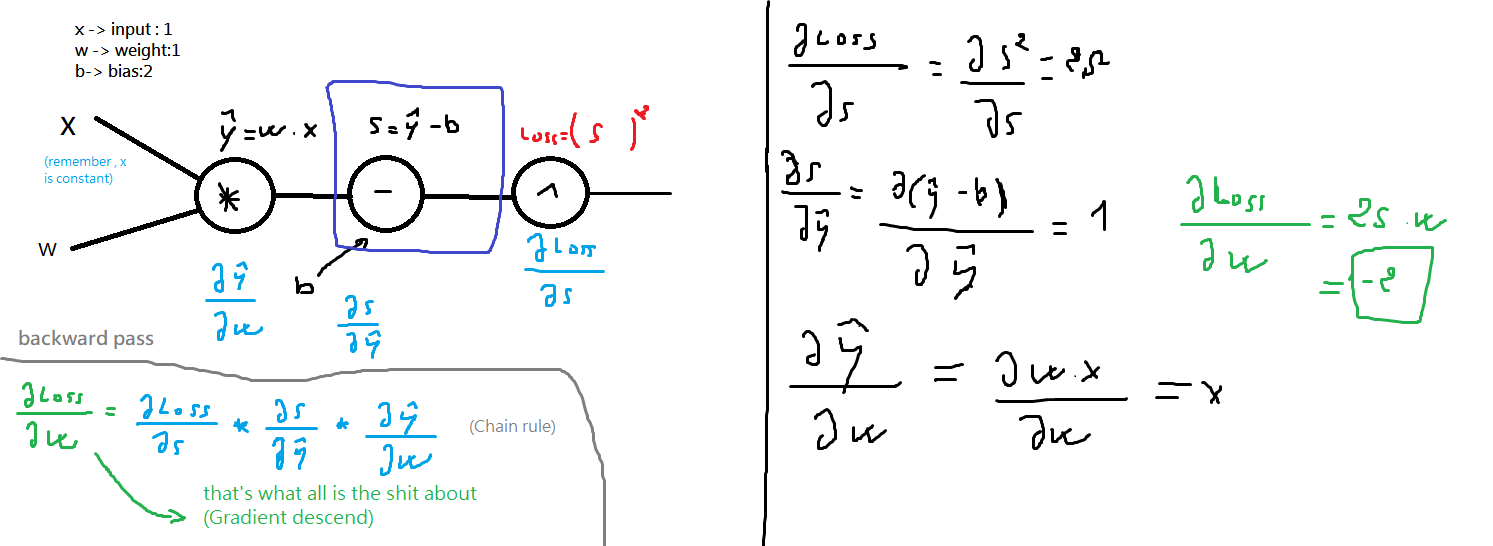 x -> input : 1
w -> weight:1
b-> bias:2
X
(remember , x
is constant)
W
ŷ = w . x
*
s = ŷ - b
-
b
Loss = ( s )²
^
∂ŷ/∂w
∂s/∂ŷ
∂Loss/∂s
backward pass
∂Loss/∂w = ∂Loss/∂s * ∂s/∂ŷ * ∂ŷ/∂w (Chain rule)
that's what all is the shit about
(Gradient descend)
∂Loss/∂s = ∂s²/∂s = 2s
∂s/∂ŷ = ∂(ŷ - b)/∂ŷ = 1
∂ŷ/∂w = ∂w . x/∂w = x
∂Loss/∂w = 2s . w
= -2